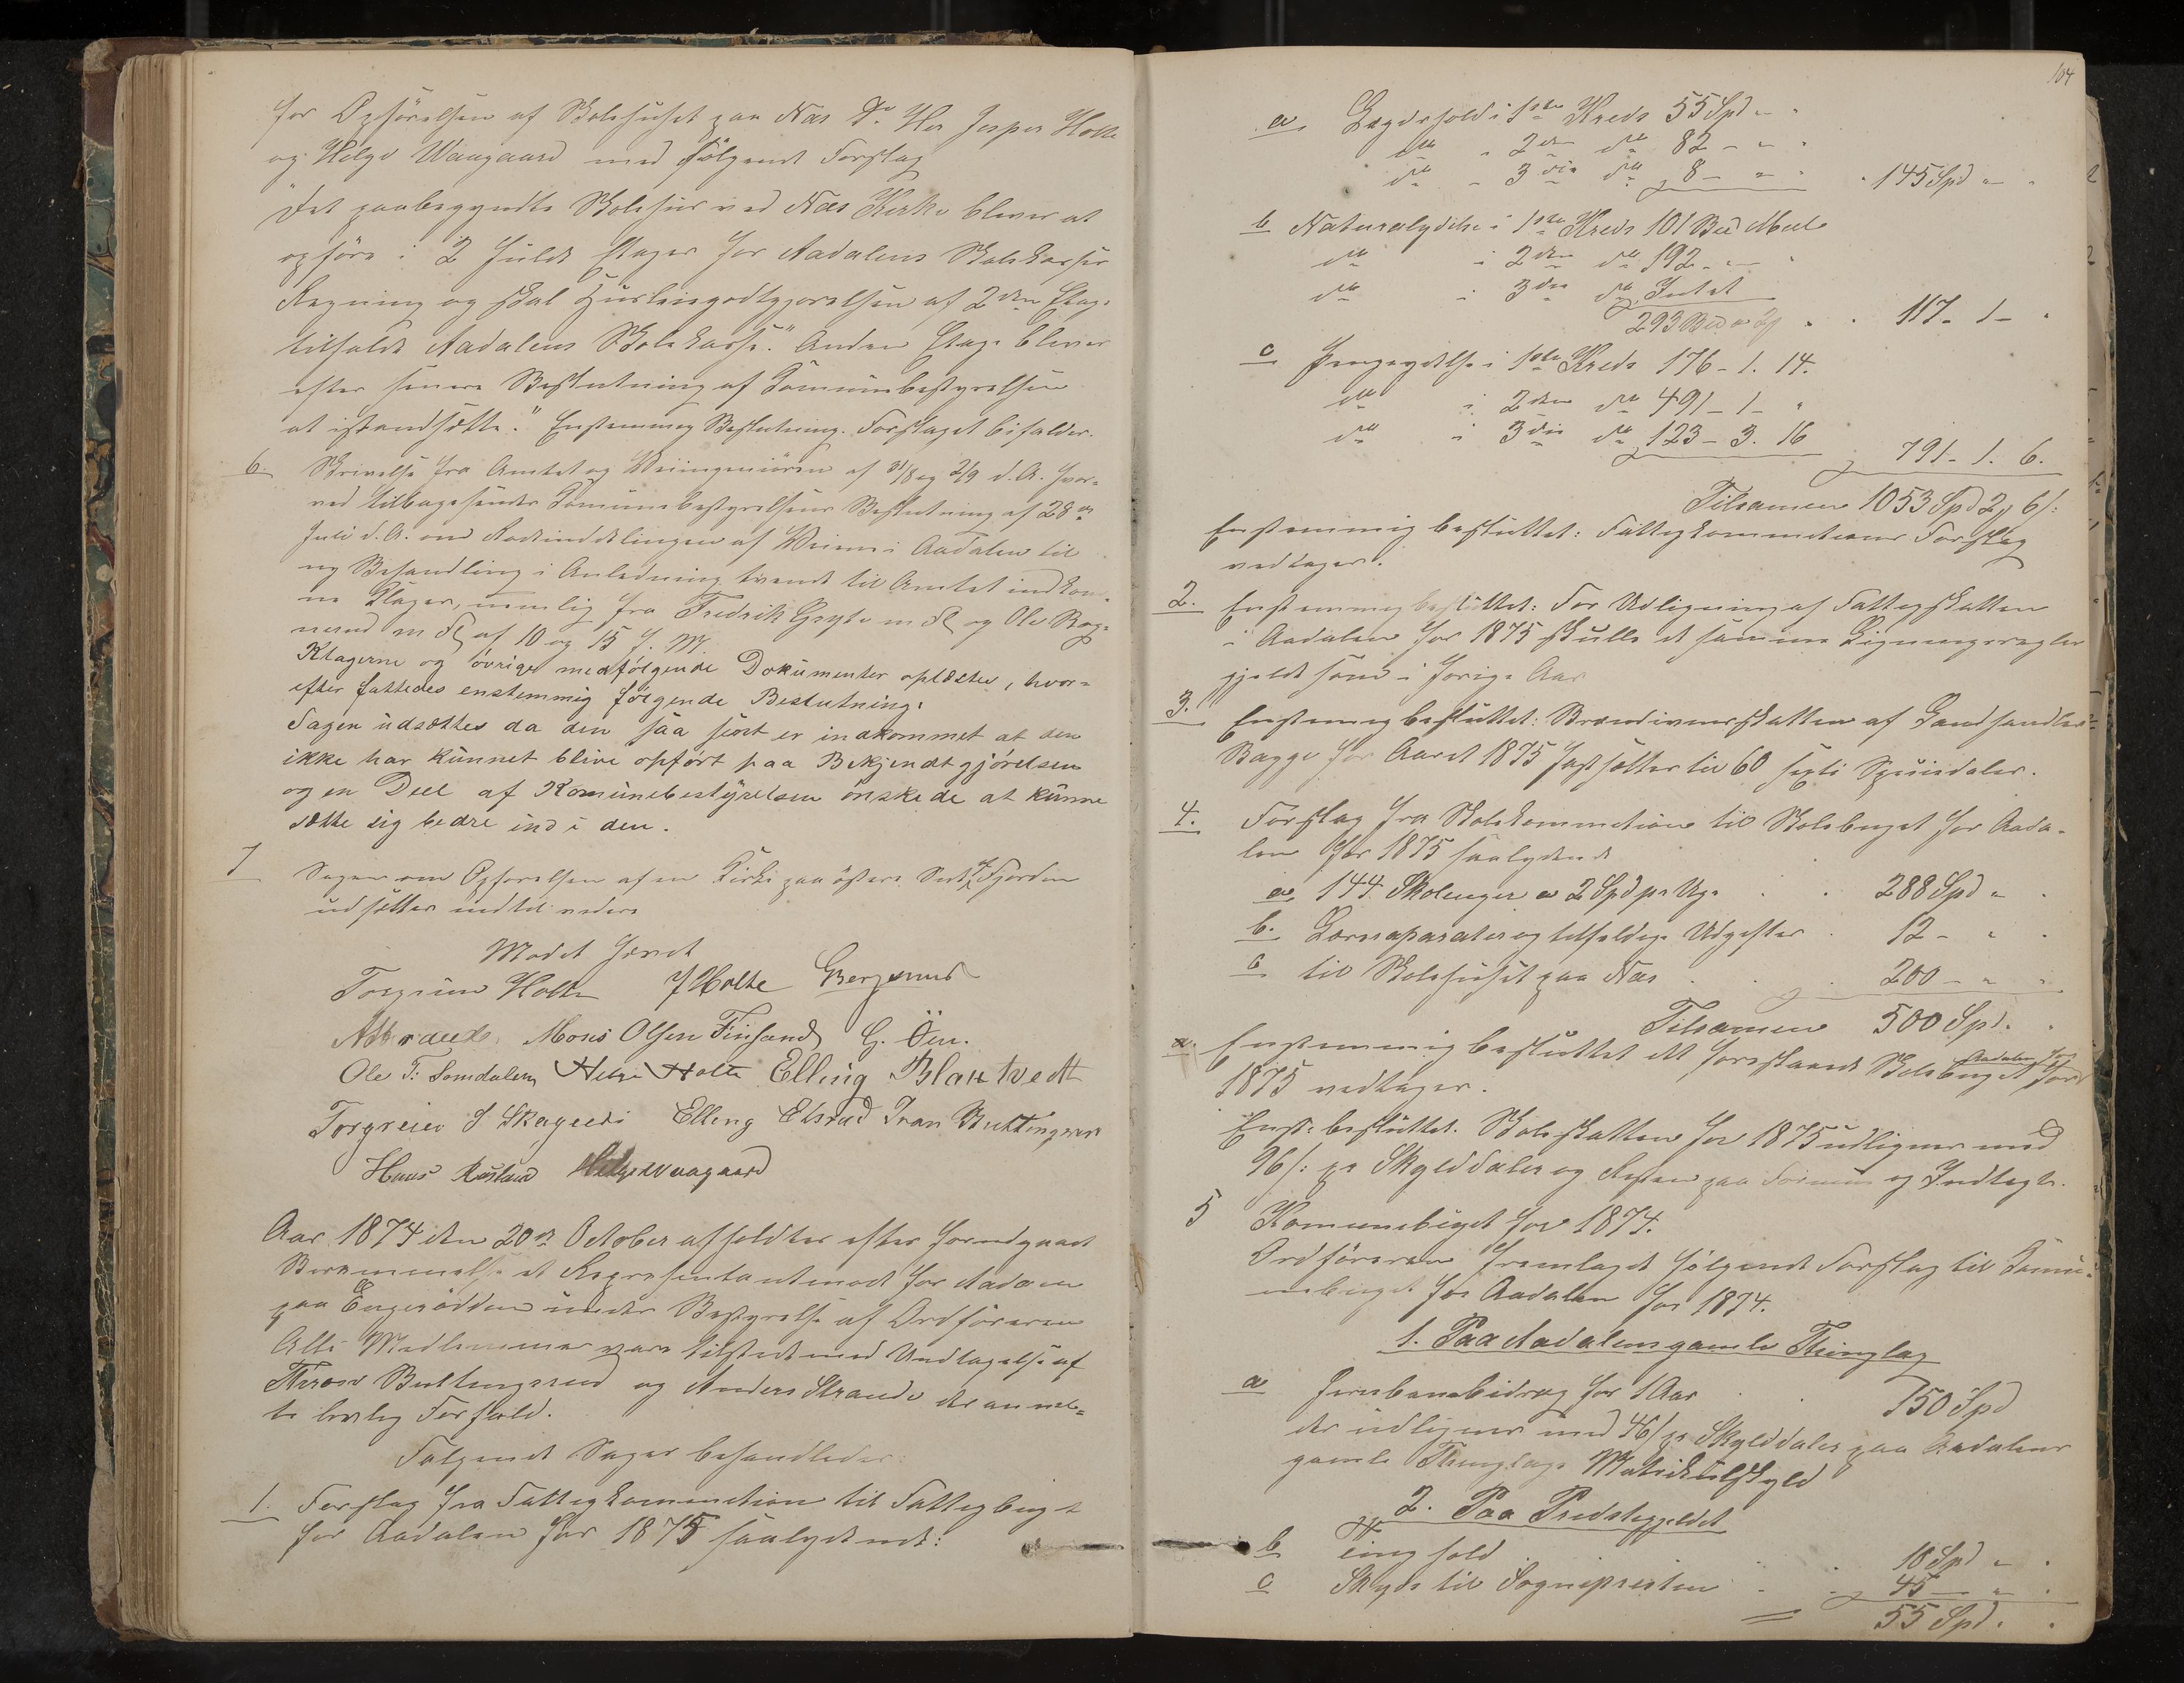 for Opførelsen af Skolehuset paa Næs Do. Hrr Jesper Holte
og Helge Waagaard med følgende Forslag
"Det paabegyndte Skolehus ved Næs Kirke bliver at
opføre i 2 fulde Etager for Aadalens Skolekasses
Regning og skal Huusleiegodtgjørelsen af 2den Etage
tilfalde Aadalens Skolekasse." Anden Etage bliver
efter senere Beslutning af Komunebestyrelsen
at istandsætte." Enstemmig Beslutning. Forslaget bifaldes.
6 Skrivelse fra Amtet og Veiingeniøren af 31/8 og 2/9 d.A. hvor-
ved tilbagesendes Komunebestyrelsens Beslutning af 28de
Juli d.A. om Rodeinddelingen af Veiene i Aadalen til
ny Behandling i Anledning tvende til Amtet indkom-
ne Klager, nemlig fra Fredrik Gryte m Fl og Ole Bag-
nerud m Fl af 10 og 15 f. M.
Klagerne og øvrige medfølgende Dokumenter oplæstes, hvor-
efter fattedes enstemmig følgende Beslutning:
Sagen udsættes da den saa sent er indkommet at den
ikke har kunnet blive opført paa Bekjendtgjørelsen
og en Deel af Komunebestyrelsen ønskede at kunne
sætte sig bedre ind i den.
7 Sagen om Opførelsen af en Kirke paa østere Side af Fjorden
udsættes indtil videre
Mødet hævet
Torgrim Holte J Holte GBergsrud
AStrande Mons Olsen Finsand G. Øen.
Ole T: Somdalen Helge Holte Elling Blaktvedt
Torgrim S Skagnes Elling Elsrud Iver Buttingsrud
Hans Rustand Helge Waagaard
Aar 1874 den 20de October afholdtes efter forudgaaet
Berammelse et Repræsentantmøde for Aadalen
paa Engerodden under Bestyrelse af Ordføreren
Alle Medlemmer vare tilstede med Undtagelse af
Iver Buttingsrud og Anders Strande der anmeld-
te lovlig Forfald.
Følgende Sager behandledes:
1. Forslag fra Fattigkommissionen til Fattigbuget
for Aadalen for 1875 saalydende:
104
a Lægdehold i 1ste Kreds 55 Spd " "
do " 2den do 82 - " "
do " 3die do 8 - " " " 145 Spd " "
b Naturalydelse i 1ste Kreds 101 Bed Meel
do i 2den do 192 - " "
do i 3die do Intet
293 Bed à 2 ß . . 117 - 1 - "
c Pengeydelse i 1ste Kreds 176 - 1. 14.
do i 2den do 491 - 1 - "
do i 3die do 123 - 3. 16 791 - 1. 6.
Tilsamen 1053 Spd 2 6 ß:
Enstemmig besluttet: Fattigkommitions Forslag
vedtages.
2. Enstemmig besluttet: For Udligning af Fattigskatten
i Aadalen for 1875 skulle de samme Ligningsregler
gjælde som i forrige Aar
3. Enstemmig besluttet: Brændevinsskatten af Landhandler
Bagge for Aaret 1875 fastsættes til 60 sexti Speciedaler.
4. Forslag fra Skolekommitionen til Skolebuget for Aada-
len for 1875 saalydende
a 144 Skoleuger a 2 Spd pr Uge . . 288 Spd " "
b. Læreapparater og tilfældige Udgifter . 12 - " "
c til Skolehuset paa Næs . . 200 - " "
Tilsamen 500 Spd. "
a. Enstemmig besluttet det foreslaaede Skolebuget for Aadalen for
1875 vedtages.
Enst: besluttet. Skoleskatten for 1875 udlignes med
96 ß: pr Skylddaler og Resten paa Formue og Indtægt.
5 Komunebuget for 1874.
Ordføreren fremlagde følgende Forslag til Komu-
nebuget for Aadalen for 1874.
1. Paa Aadalens gamle Thinglag
a Jernbanebidrag for 1 Aar . . 150 Spd
der udlignes med 46 ß pr Skylddaler paa Aadalens
gamle Thinglags Matrikulskyld
2. Paa Præstegjeldet
b Tinghold . . 10 Spd " "
c Skyds til Sognepresten . . 45 - " "
55 Spd. "